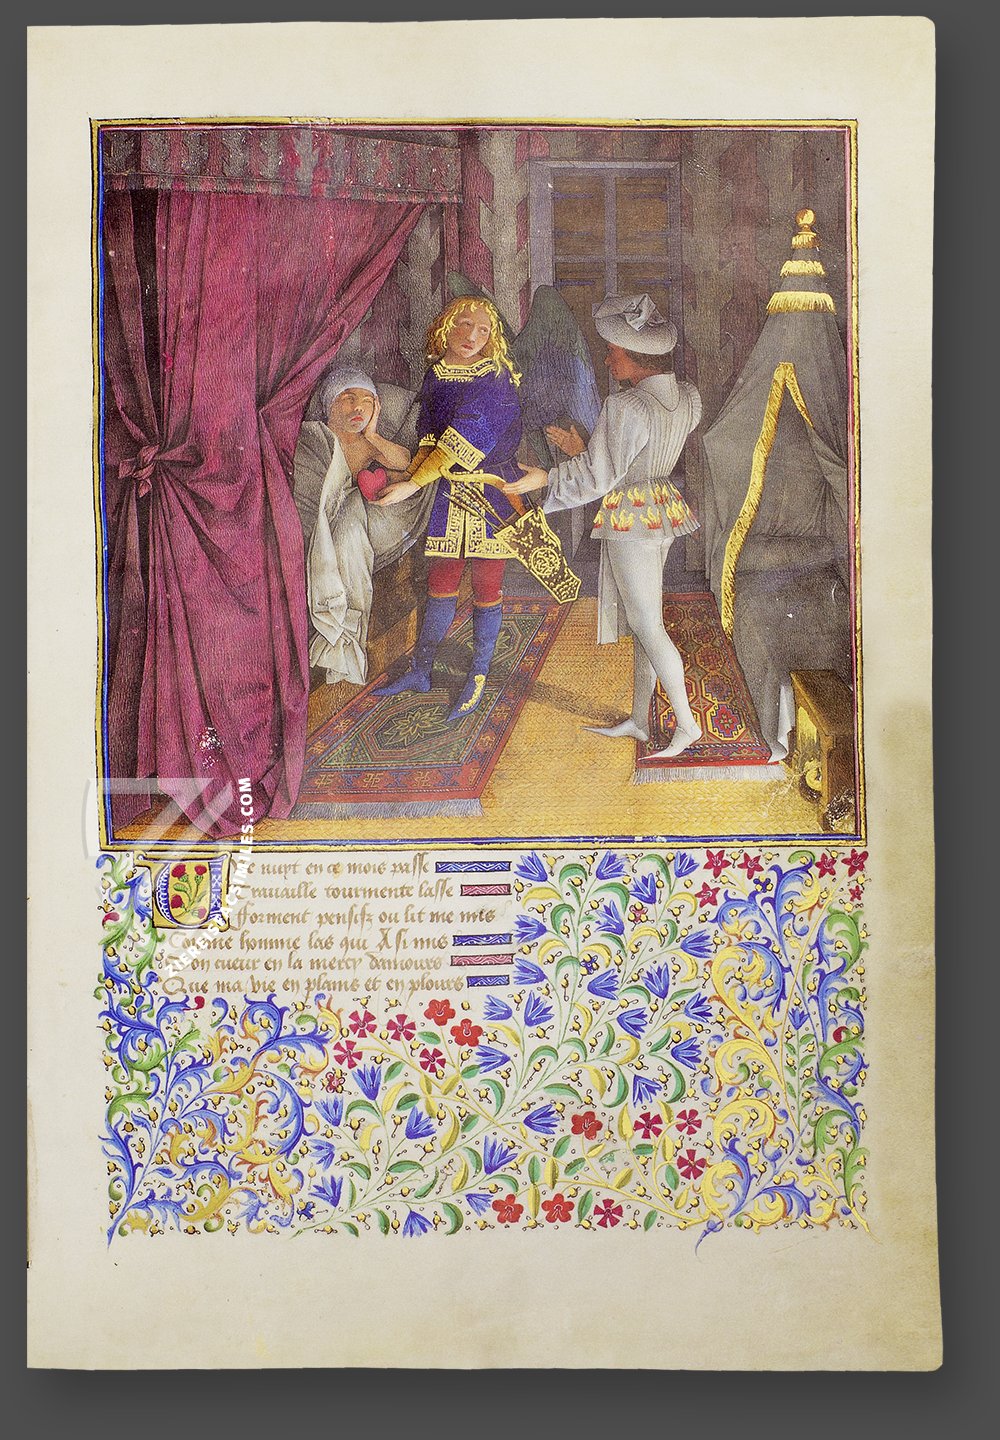 Une nuyt en ce mois passe
Travaille tourmente lasse
Forment pensifz ou lit me mis
Comme homme las qui A si mis
Son cueur en la mercy damours
Que ma vie en plains et en plours
FACSIMILES.COM